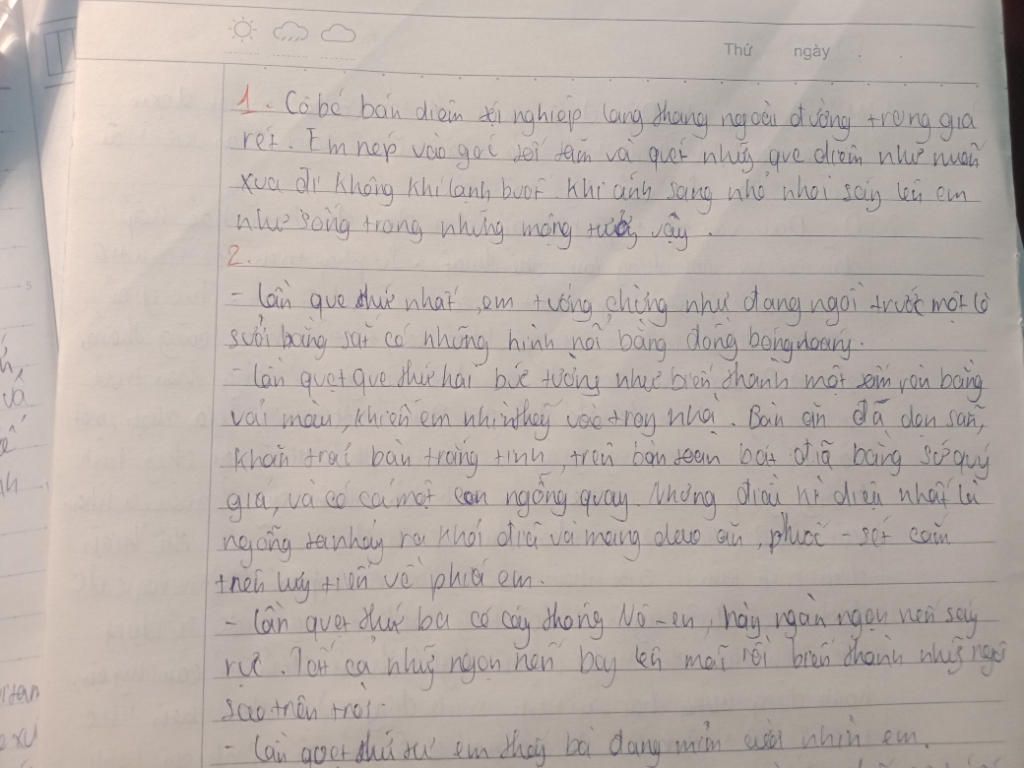 Thứ ngày
1. Cô bé bán diêm xí nghiệp lang thang ngoài đường trong giá
rét. Em nép vào góc tối tăm và quẹt những que diêm như muốn
xua đi không khí lạnh buốt. Khi ánh sáng nhỏ nhoi sáy lên em
như sống trong những mộng tưởng vậy.
2.
- lần que thứ nhất, em tưởng chừng như đang ngồi trước một lò
sưởi bằng sắt có những hình nổi bằng đồng bóng
- lần quẹt que thứ hai bức tường như biến thành một bằng
vải màu, khiến em nhìn thấy vào trong nhà. Bàn ăn đã dọn sẵn,
khăn trải bàn trắng tinh, trên bàn toàn bát đĩa bằng sứ quý
giá, và có cả một con ngỗng quay. Nhưng điều kì diệu nhất là
ngỗng ta nhảy ra khỏi đĩa và mang dao ăn, phuốc - sét cắm
trên lưng tiến về phía em.
- lần quẹt thứ ba có cây thông Nô-en, hàng ngàn ngọn nến sáy
rực. Tất cả những ngọn nến bay lên mãi rồi biến thành những ngôi
sao trên trời.
- lần quẹt thứ tư em thấy bà đang mỉm cười nhìn em.